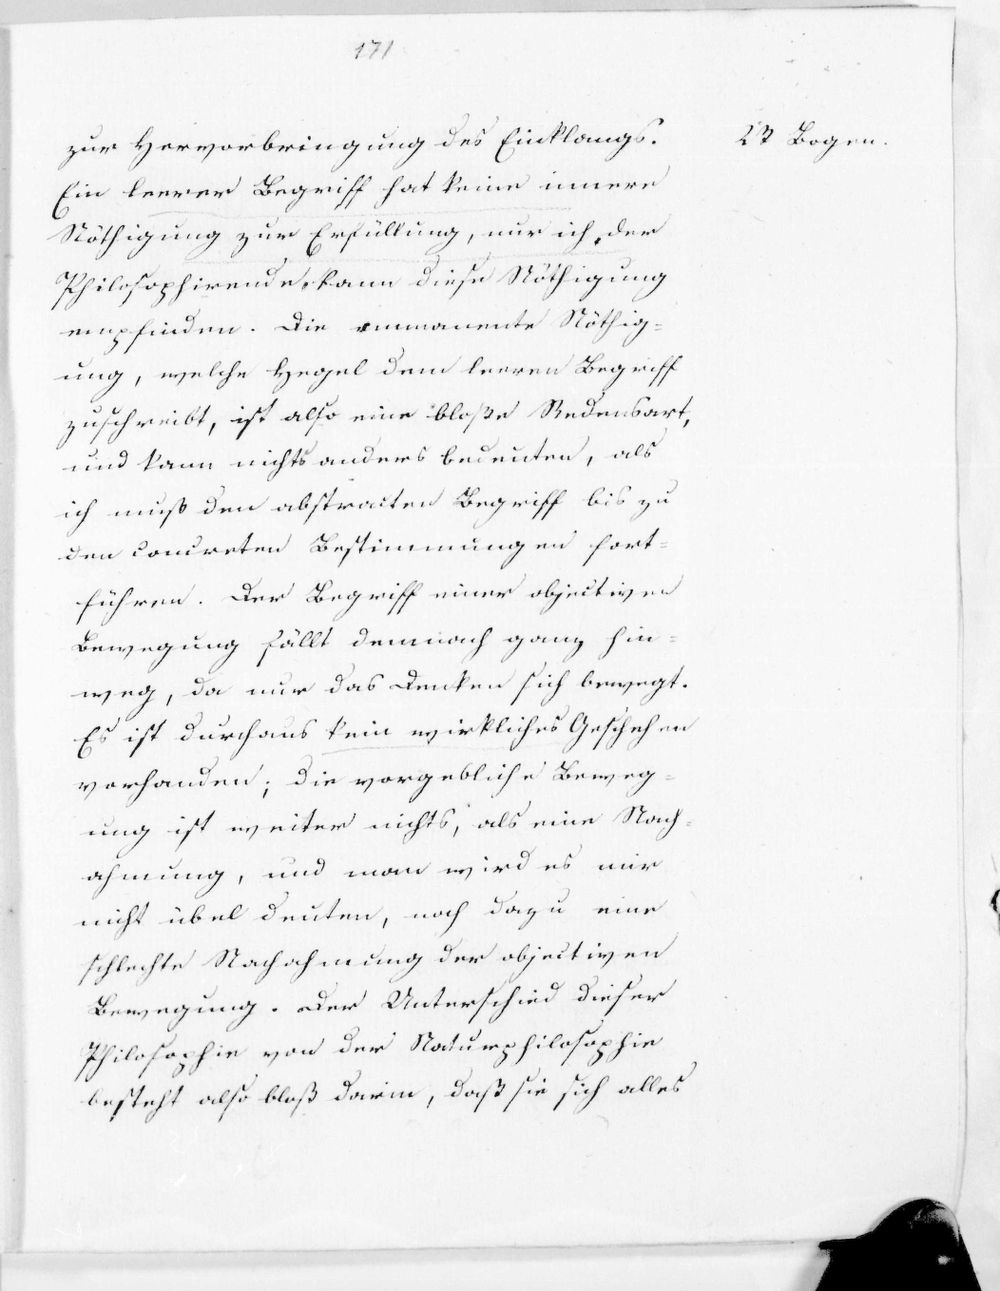 171
zur Hervorbringung des Einklangs.
23 Bogen.
Ein leerer Begriff hat keine innere
Nöthigung zur Erfüllung, nur ich, der
Philosophirende, kann diese Nöthigung
empfinden. Die immanente Nöthig=
ung, welche Hegel dem leeren Begriff
zuschreibt, ist also eine bloße Redensart,
und kann nichts anders bedeuten, als
ich muß den abstracten Begriff bis zu
den concreten Bestimmungen fort=
führen. Der Begriff einer objectiven
Bewegung fällt demnach ganz hin=
weg, da nur das Denken sich bewegt.
Es ist durchaus kein wirkliches Geschehen
vorhanden; die vorgebliche Beweg=
ung ist weiter nichts, als eine Nach=
ahmung, und man wird es mir
nicht übel deuten, noch dazu eine
schlechte Nachahmung der objectiven
Bewegung. Der Unterschied dieser
Philosophie von der Naturphilosophie
besteht also bloß darin, daß sie sich alles